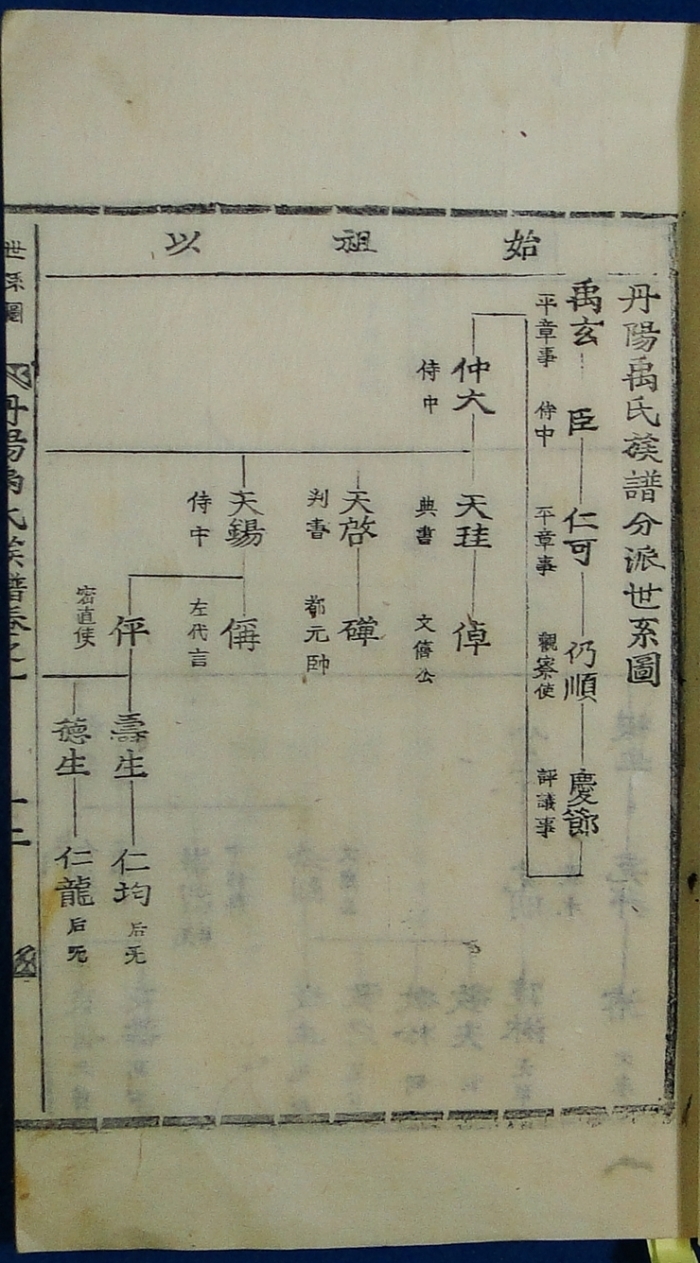 始祖以
丹陽禹氏族譜分派世系圖
禹玄 平章事
臣 侍中
仁可 平章事
仍順 觀察使
慶節 評議事
仲大 侍中
天珪 典書
倬 文僖公
天啓 判書
磾 都元帥
天錫 侍中
偁 左代言
伻 密直使
壽生
仁均 后旡
德生
仁龍 后旡
世系圖
丹陽禹氏族譜卷之一